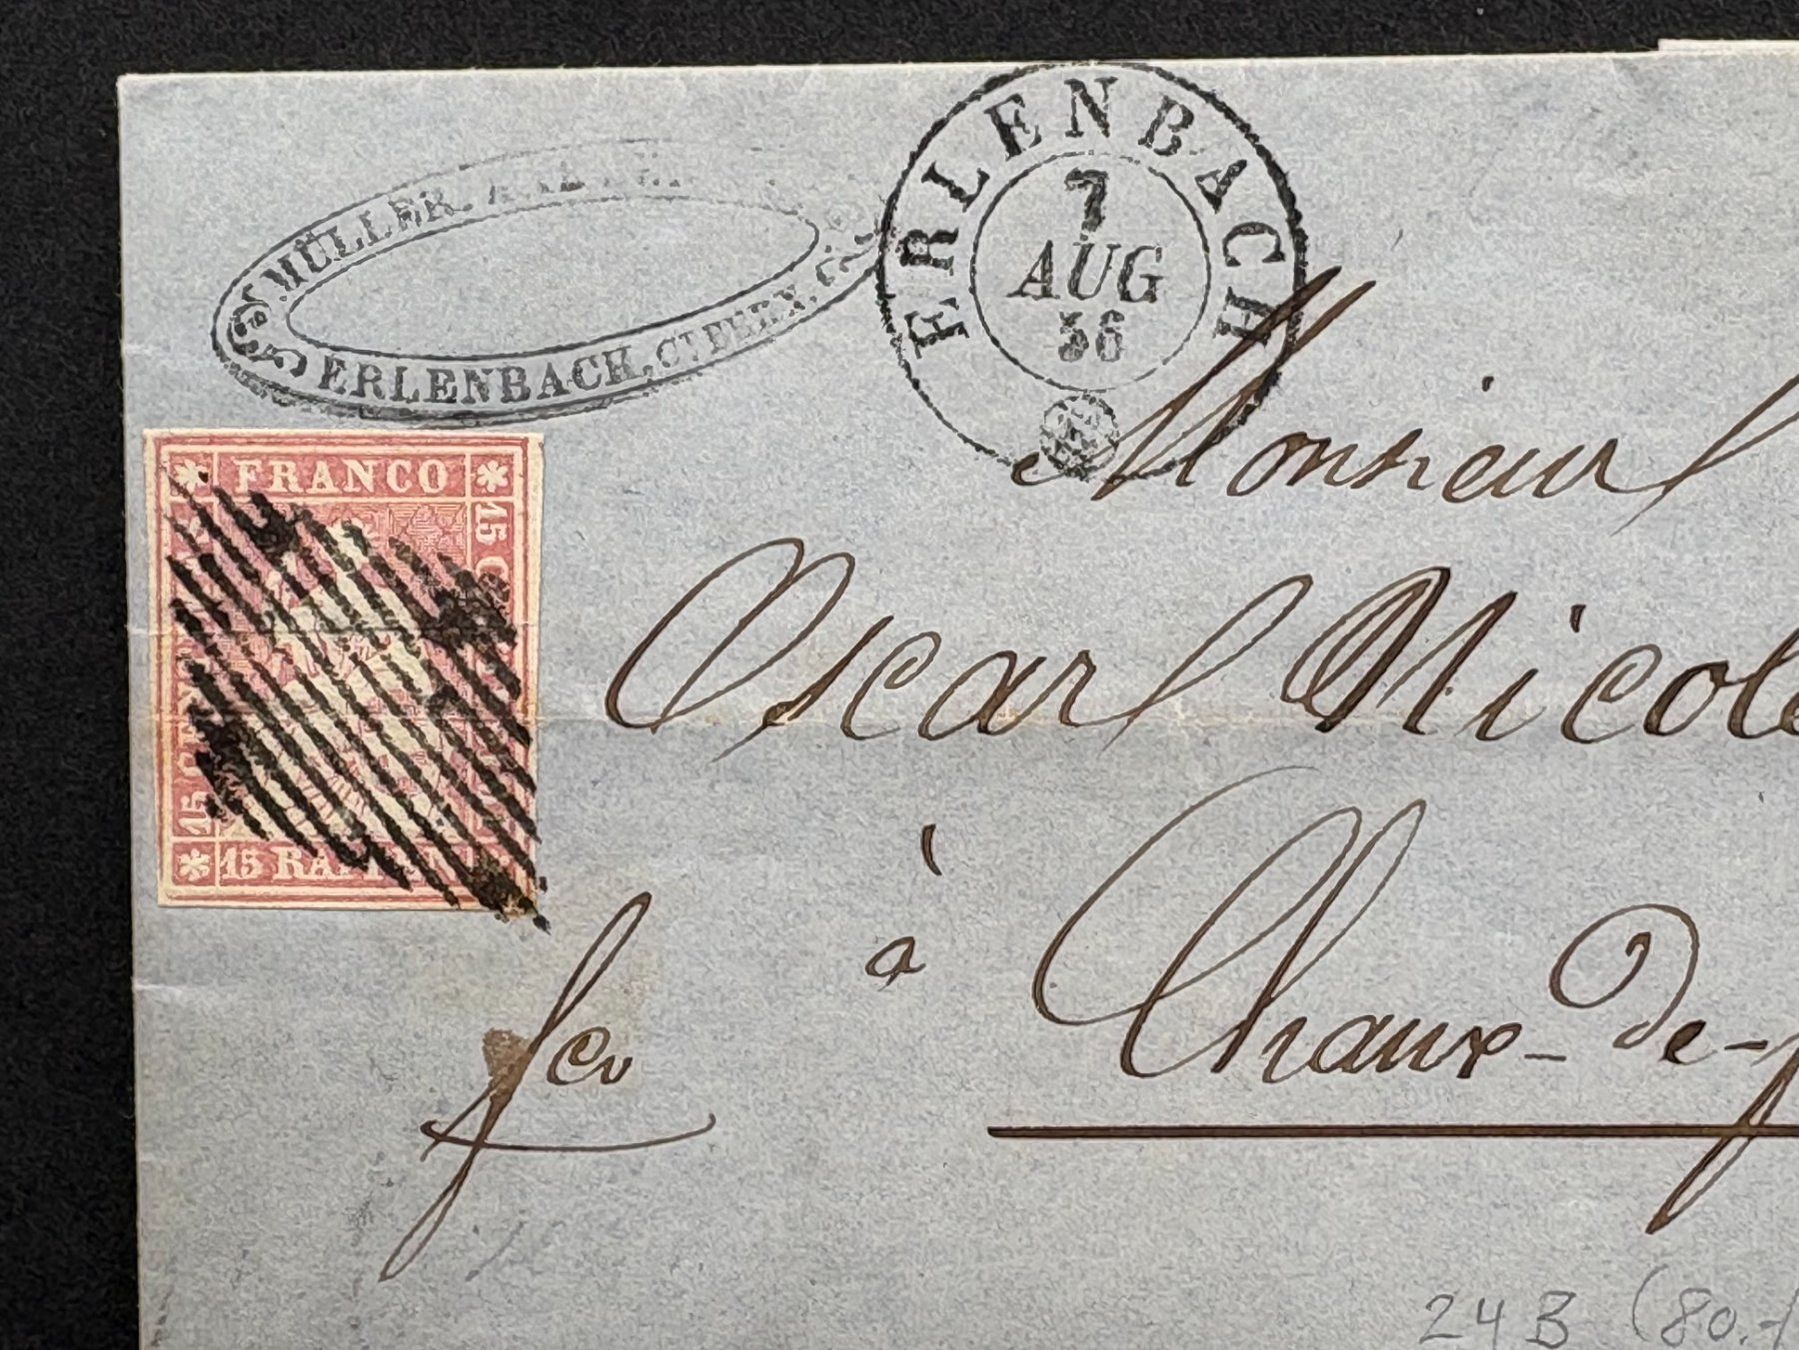 MÜLLER.
ERLENBACH, CT BERN.
ERLENBACH
7
AUG
56
FRANCO
15 C
15 CEN
15 RAPPEN
Monsieur
Oscar Nicole
à
Chaux-de-f
fco
24 B (80.-